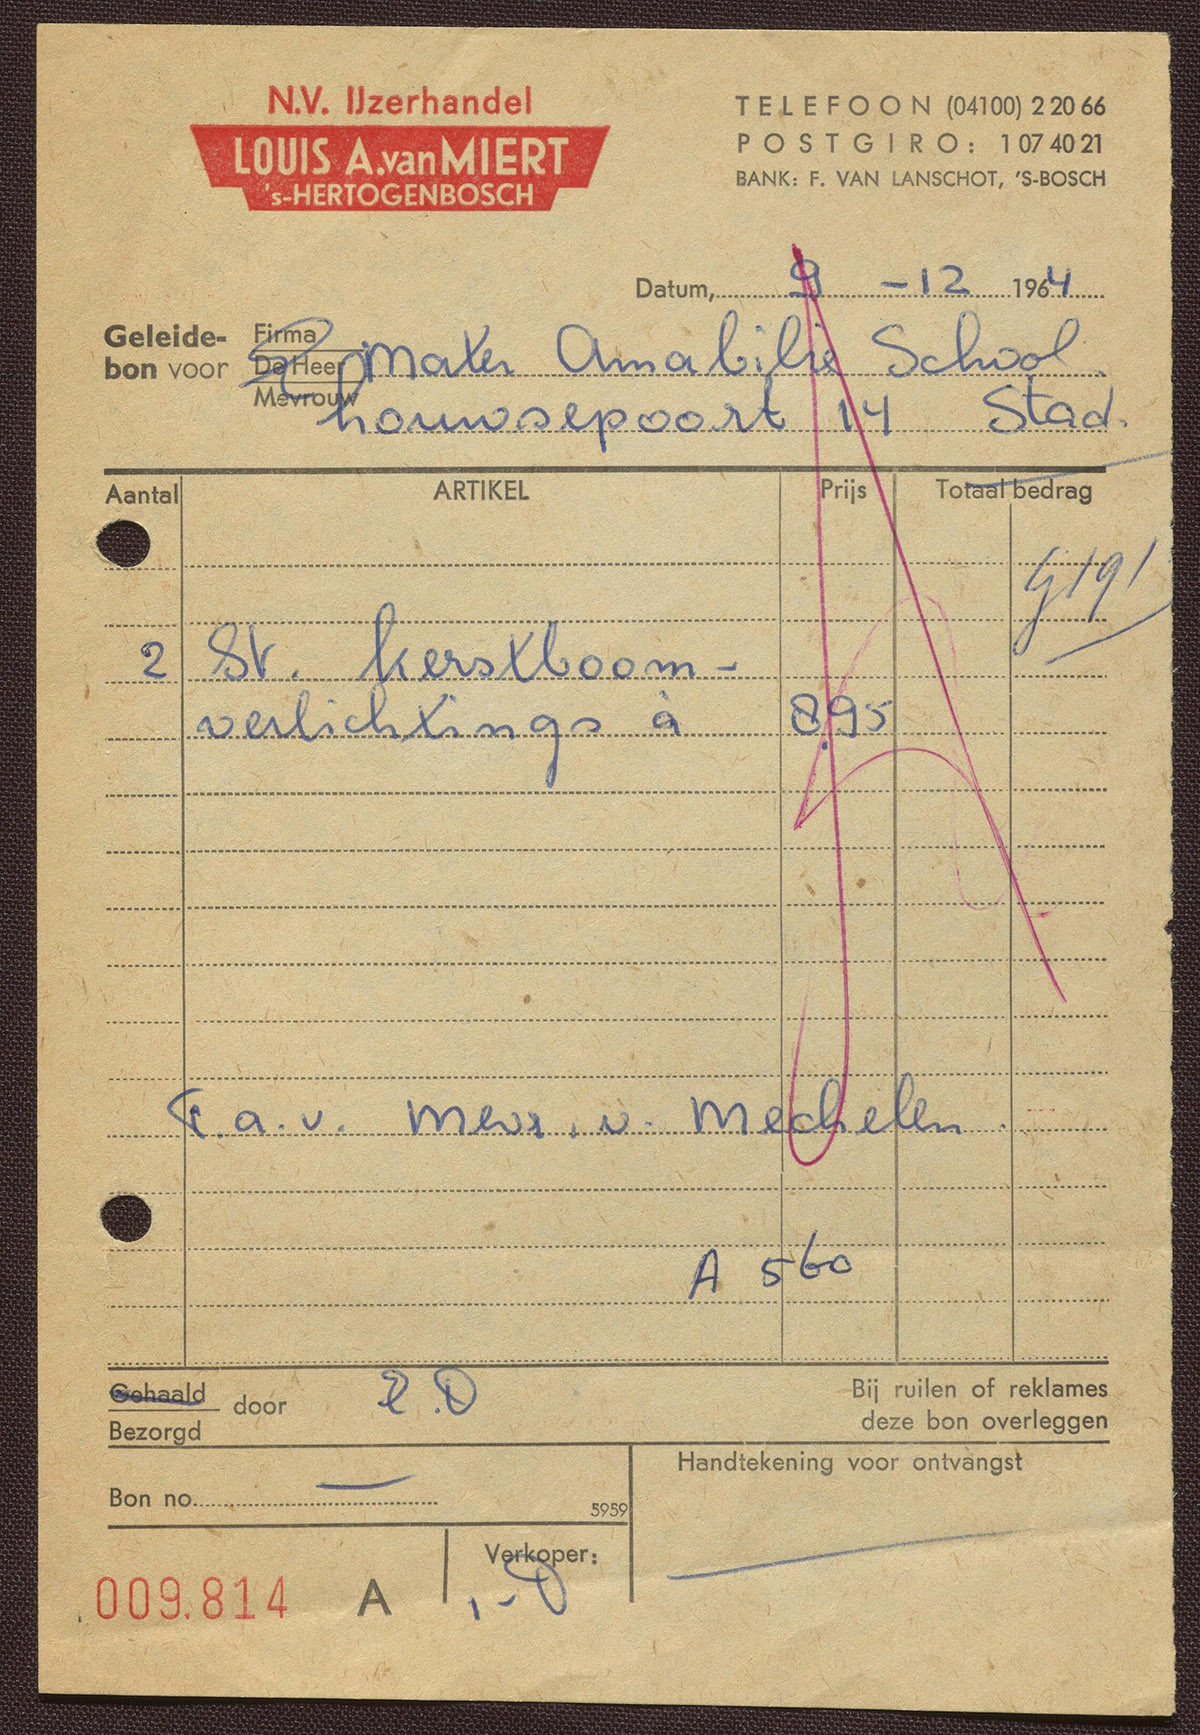 N.V. IJzerhandel
LOUIS A. van MIERT
's-HERTOGENBOSCH
TELEFOON (04100) 2 20 66
POSTGIRO: 1 07 40 21
BANK: F. VAN LANSCHOT, 'S-BOSCH
Datum, 9 - 12 1964
Geleide-
bon voor
Firma
De Heer
Mevrouw
Mater Amabilis School
houwsepoort 14 Stad.
Aantal ARTIKEL Prijs Totaal bedrag
2 St. kerstboom-
verlichtings à 8,95
T.a.v. Mevr. v. Mechelen.
A 560
Gehaald
Bezorgd
door
Bij ruilen of reklames
deze bon overleggen
Bon no.
5959
Handtekening voor ontvangst
Verkoper:
009.814 A